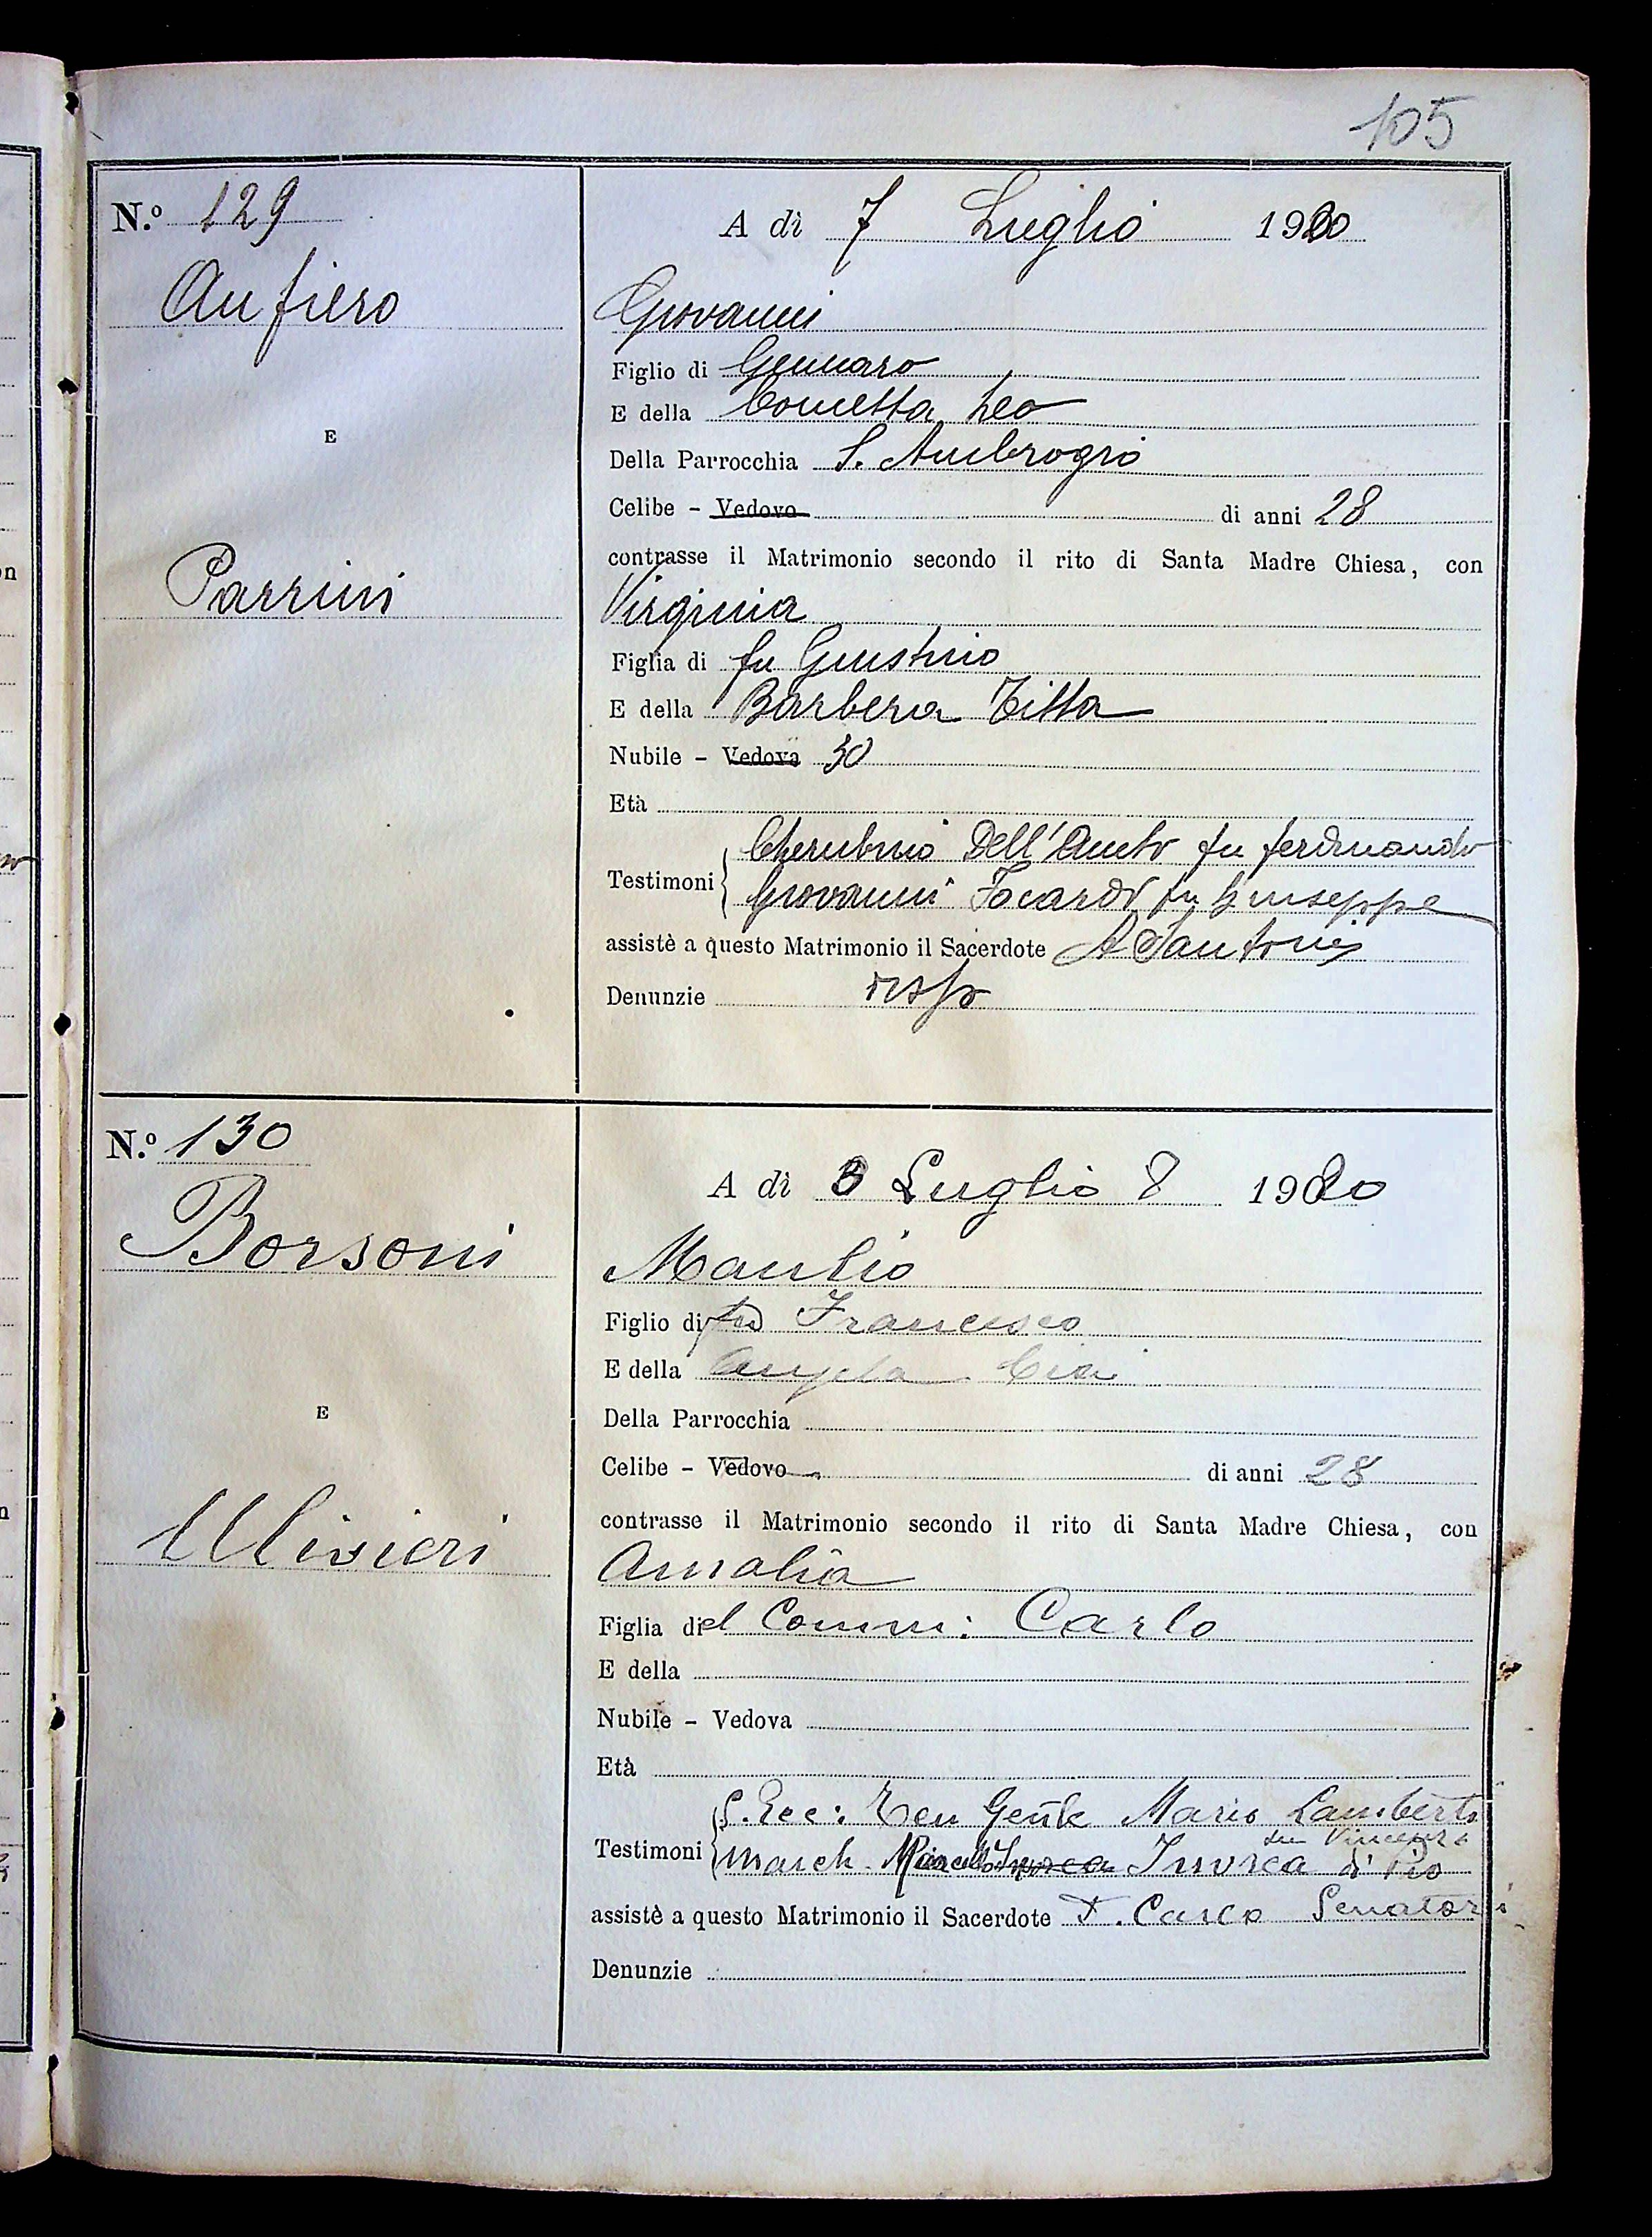 105
N.º 129
A dì 7 Luglio 1920
Aufiero
Giovanni
Figlio di Gennaro
E della Concetta Leo
E
Della Parrocchia S. Ambrogio
Celibe - Vedovo di anni 28
contrasse il Matrimonio secondo il rito di Santa Madre Chiesa, con
Parrini
Virginia
Figlia di fu Giustino
E della Barbera Titta
Nubile - Vedova 30
Età
Testimoni
Cherubino Dell'Aueto fu ferdinando
Giovanni Focardi fu Giuseppe
assistè a questo Matrimonio il Sacerdote A Santonij
Denunzie
N.º 130
A dì 8 Luglio 8 1920
Borsoni
Manlio
Figlio di fu Francesco
E della Angela
E
Della Parrocchia
Celibe - Vedovo di anni 28
contrasse il Matrimonio secondo il rito di Santa Madre Chiesa, con
Ulivieri
Amalia
Figlia del Comm: Carlo
E della
Nubile - Vedova
Età
Testimoni
S. Ecc: Ten Gen̄le Mario Lamberti
fu Vincenzo
March. Marcello Invrea Invrea di Pio
assistè a questo Matrimonio il Sacerdote F. Carlo Senatori
Denunzie